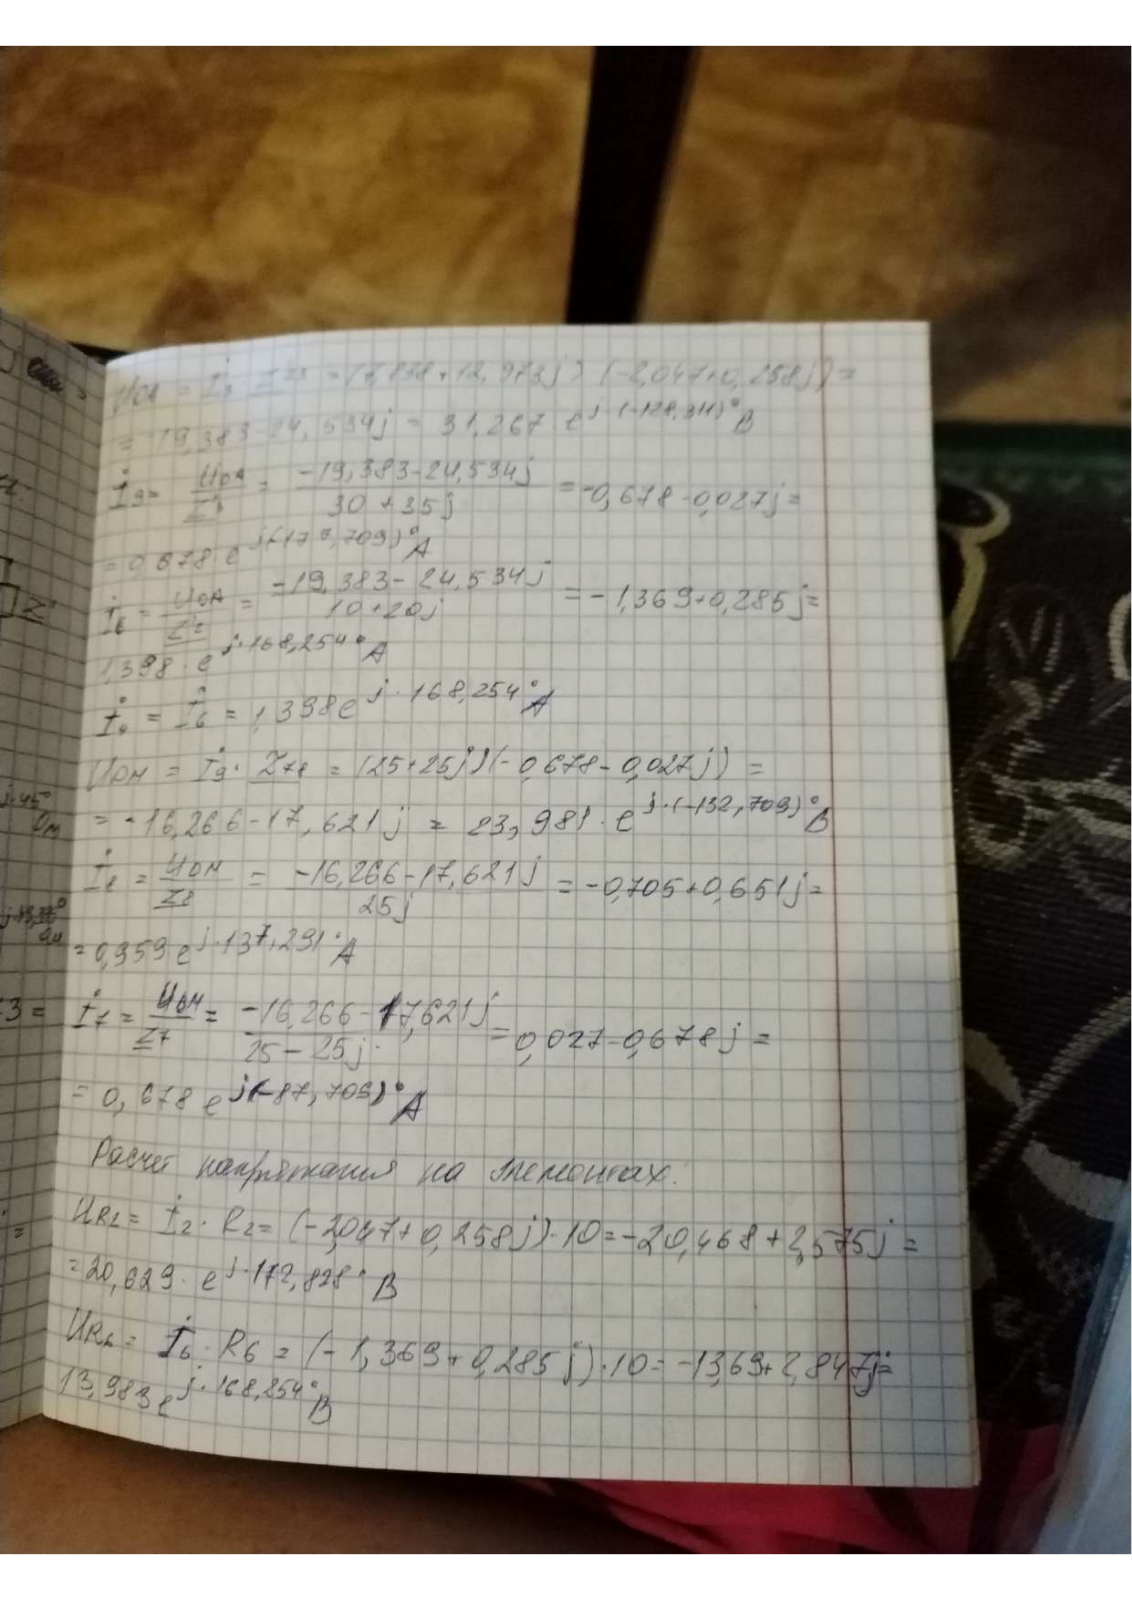 = -19,383-24,534j = 31,267·e^{j·(-128,311)°} В
İ₉ = U_DA/Z³ = (-19,383-24,534j)/(30+35j) = -0,678-0,027j =
= 0,678·e^{j(-177,709)°} А
İ₆ = U_DA/Z² = (-19,383-24,534j)/(10+20j) = -1,369+0,285j =
1,398·e^{j·168,254°} А
= İ₆ = 1,398e^{j·168,254°} А
U_DM = İ₉·Z₇₈ = (25+25j)(-0,678-0,027j) =
= -16,266-17,621j = 23,981·e^{j·(-132,709)°} В
İ₈ = U_DM/Z₈ = (-16,266-17,621j)/25j = -0,705+0,651j =
= 0,959e^{j·137,291°} А
İ₇ = U_DM/Z₇ = (-16,266-17,621j)/(25-25j) = 0,027-0,678j =
= 0,678e^{j(-87,709)°} А
Расчет напряжения на элементах:
U_R2 = İ₂·R₂ = (-2,047+0,258j)·10 = -20,468+2,575j =
= 20,629·e^{j·172,828°} В
U_R6 = İ₆·R₆ = (-1,369+0,285j)·10 = -13,69+2,847j =
13,983e^{j·168,254°} В